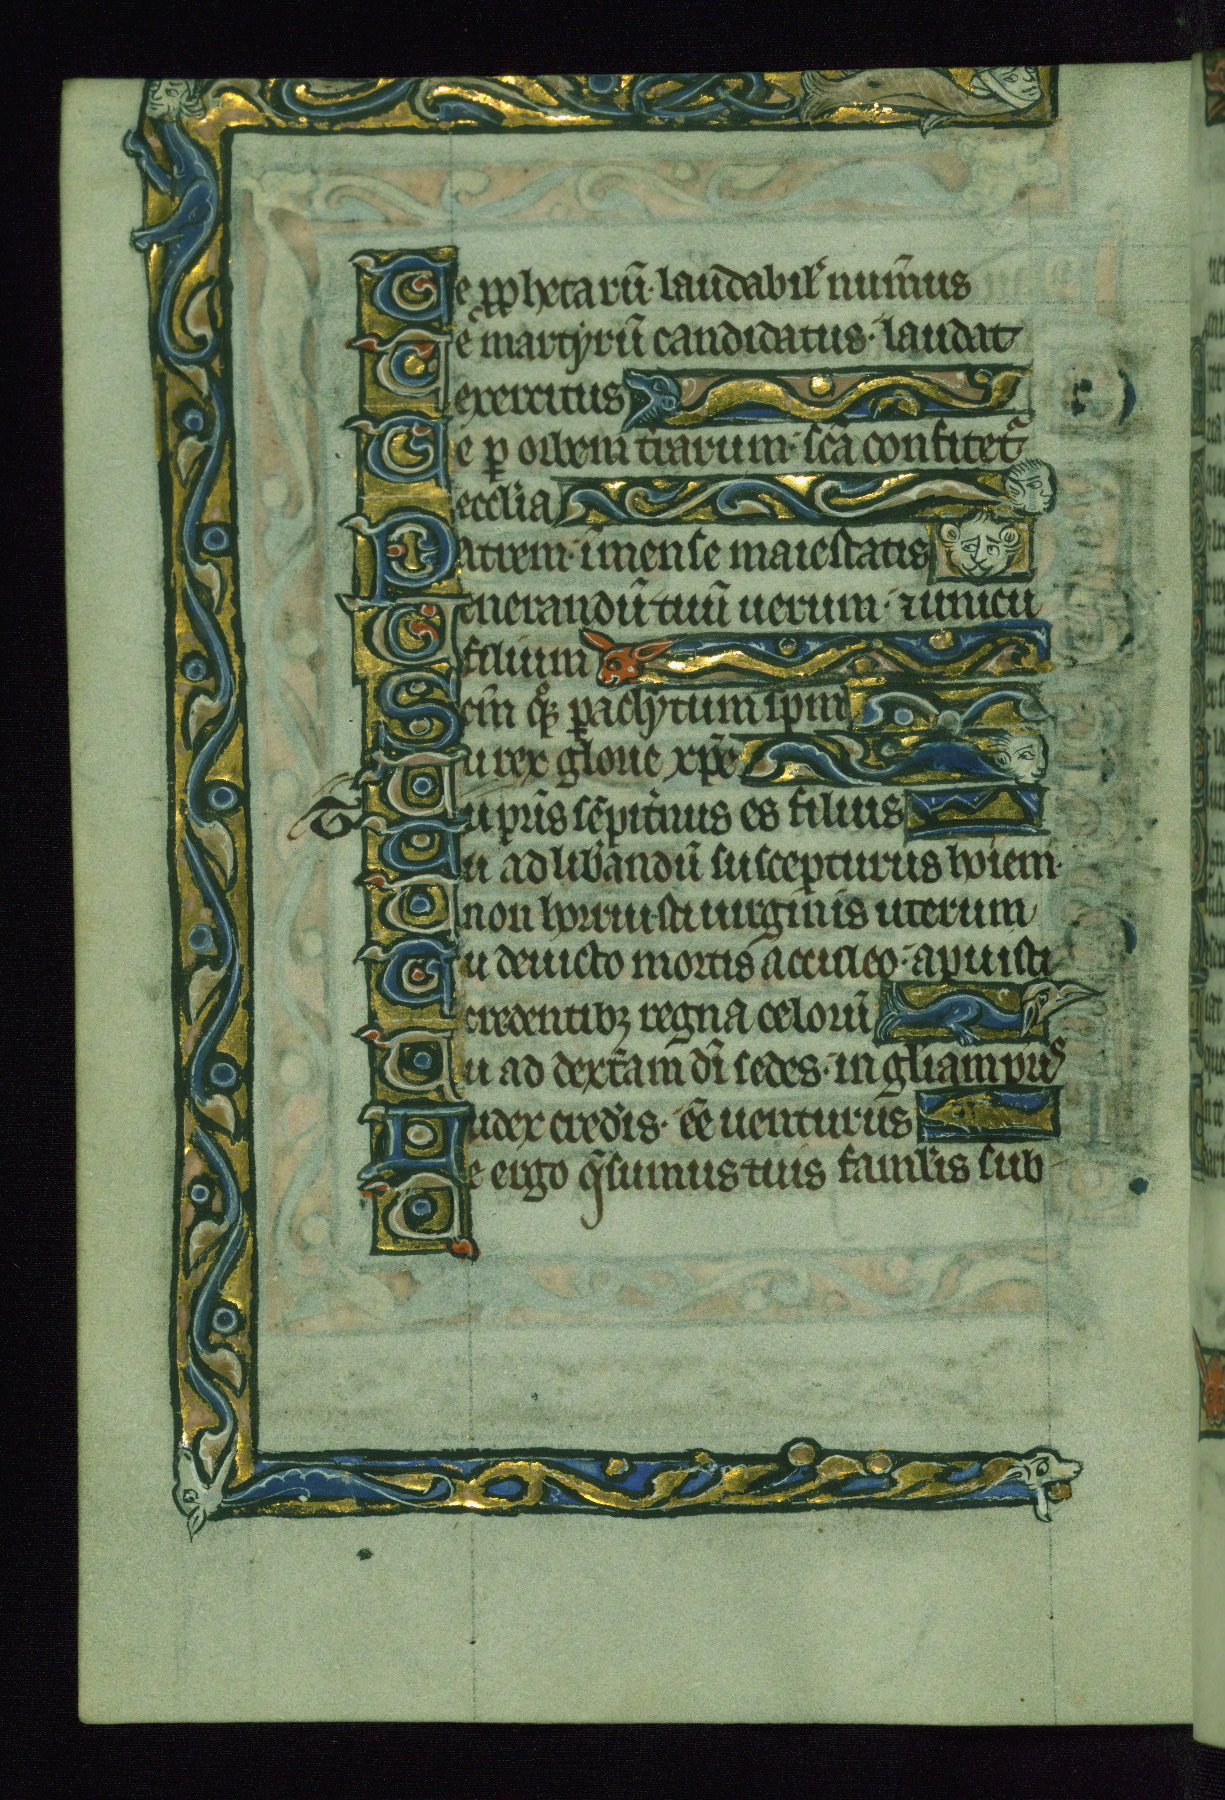 Te ꝓphetarū· laudabil' num̄us
Te martyrū candidatus· laudat
exercitus
Te ꝑ orbem t̄rarum· sc̄a confitet᷑
eccl'ia
Patrem· īmense maiestatis
Uenerandū tuū uerum· ⁊ unicū
filium
Sc̄m qͦꝫ ꝑaclytum sp̄m
Tu rex glorie xp̄e
Tu pr̄is sēpit̄nus es filius
Tu ad lib̄andū suscepturus hoīem·
non horruisti uirginis uterum
Tu deuicto mortis acculeo· apuisti
credentibꝫ regna celorū
Tu ad dext̄am dī sedes· in gl'iam pr̄is
Iudex crederis· ēē uenturus
Te ergo q̄sumus tuis famul'is sub
T